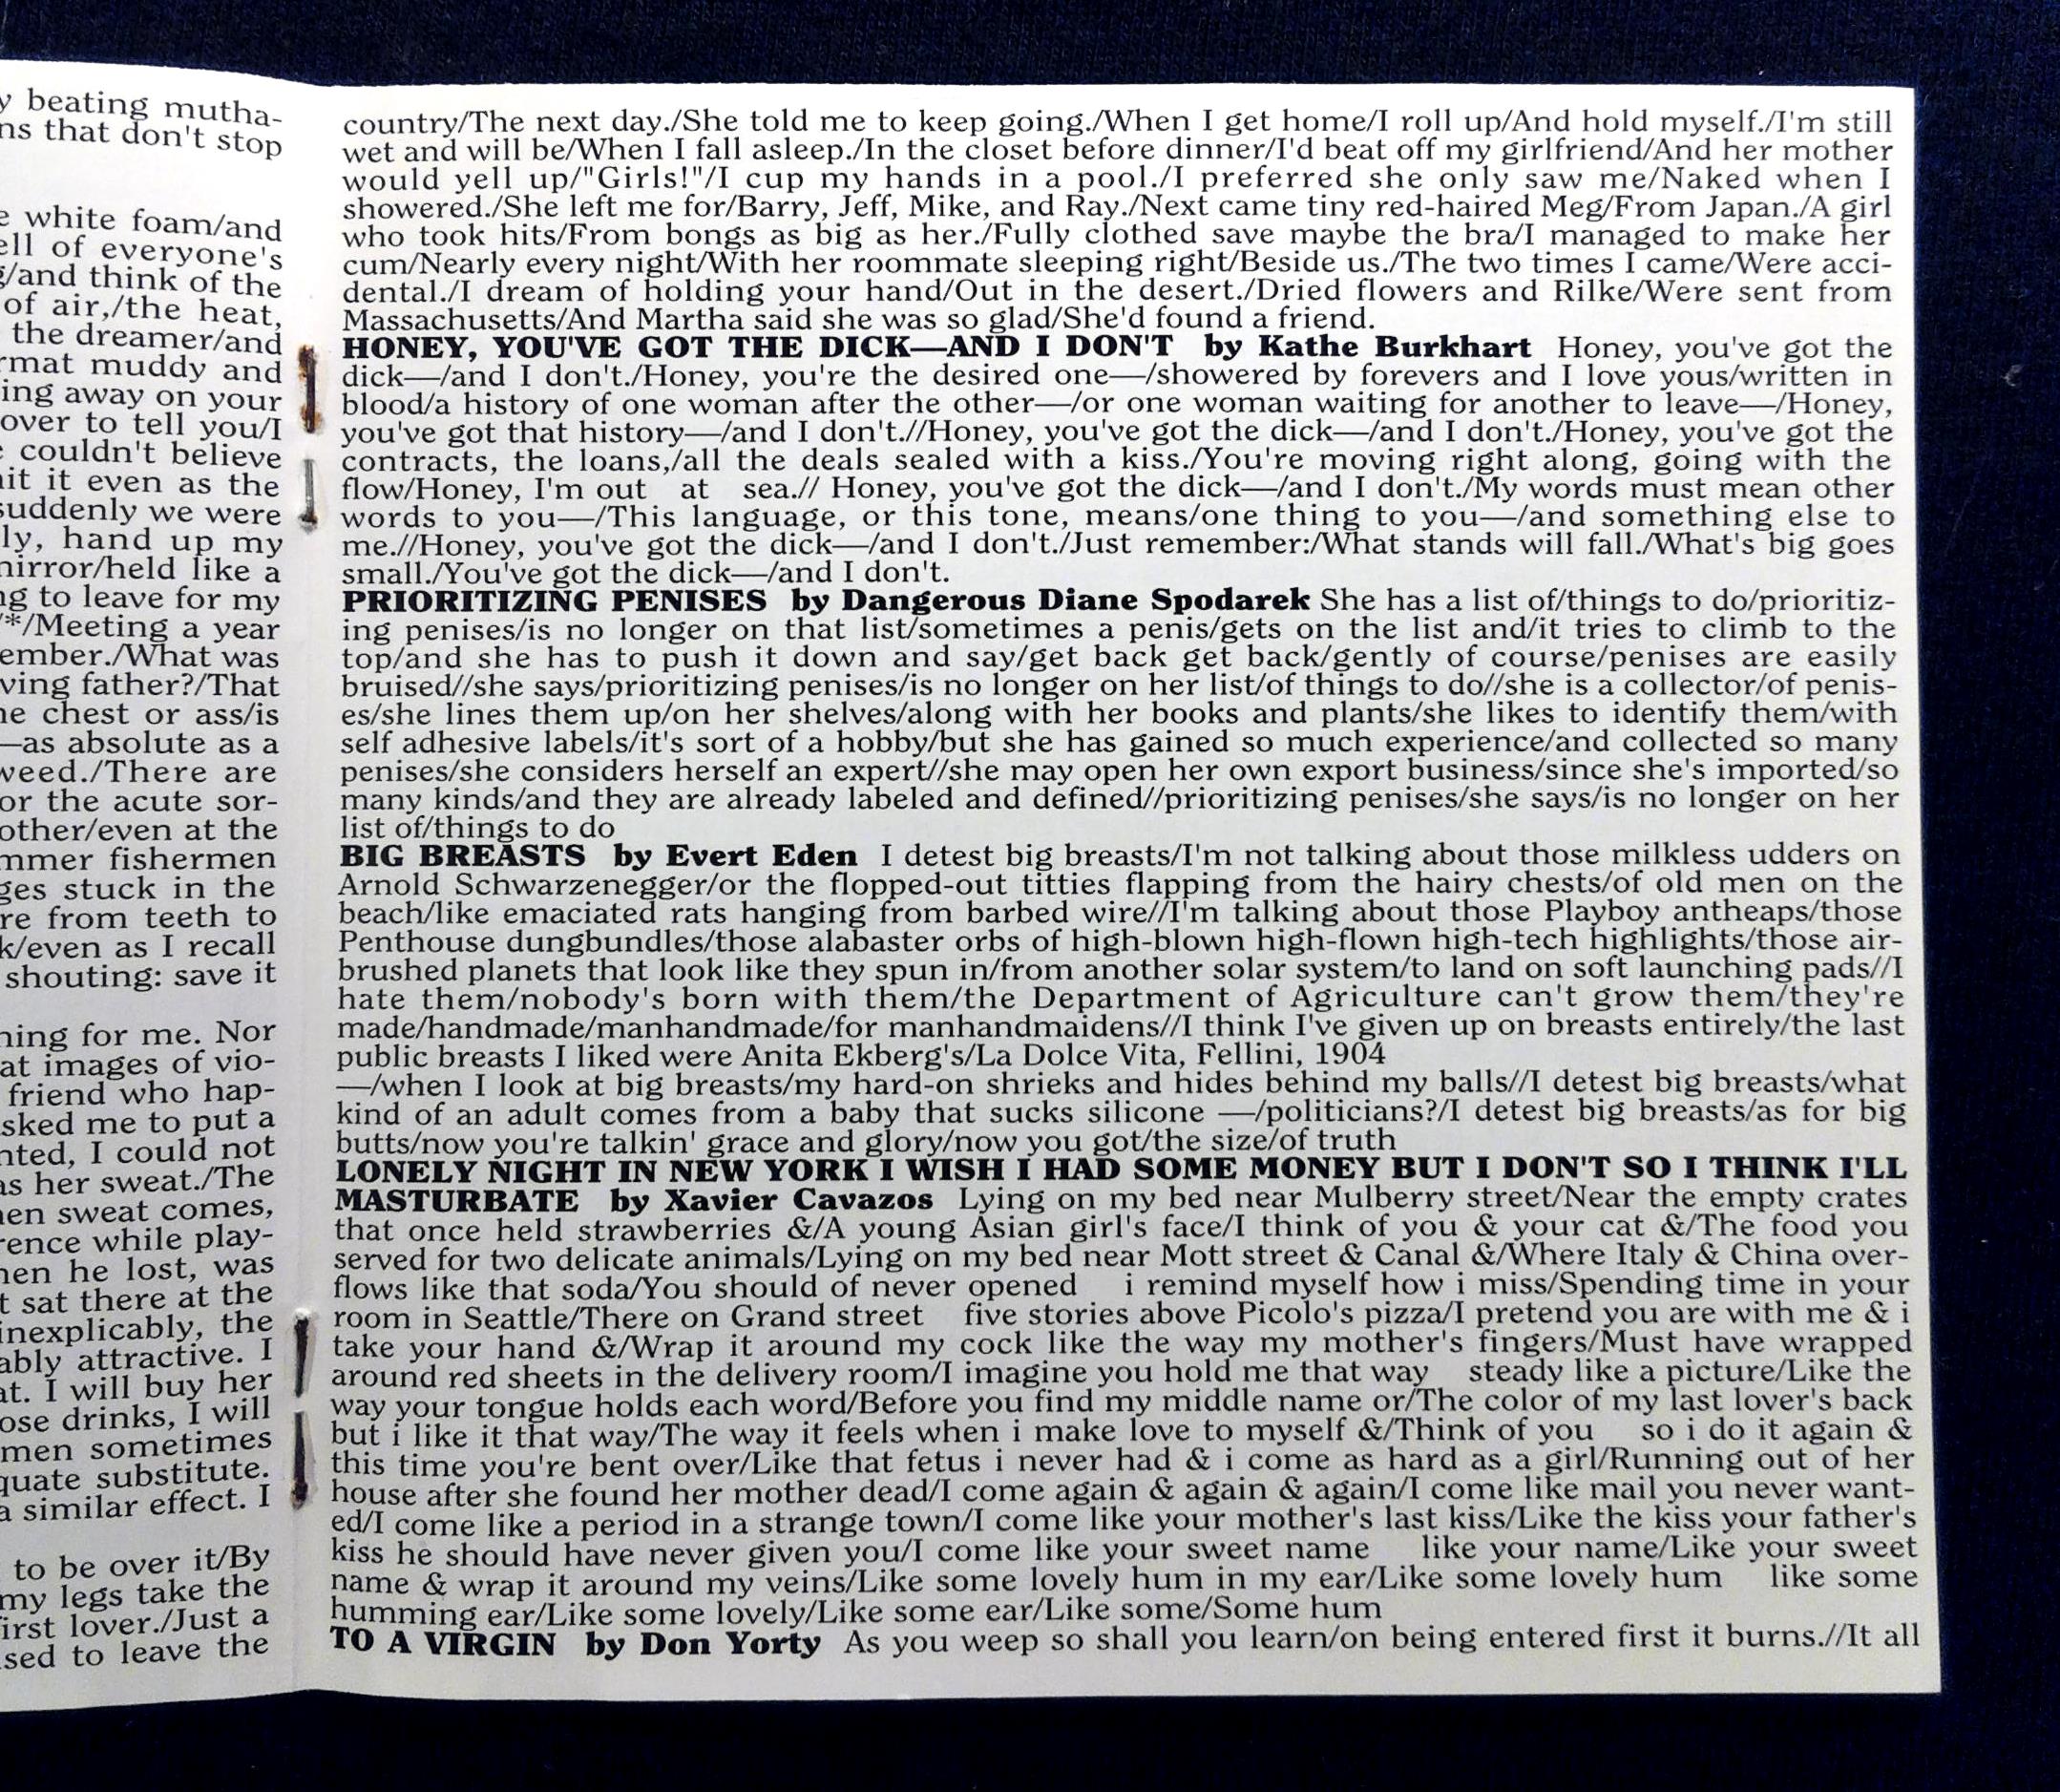 y beating mutha-
ns that don't stop
e white foam/and
ell of everyone's
g/and think of the
of air,/the heat,
the dreamer/and
rmat muddy and
ing away on your
over to tell you/I
couldn't believe
it it even as the
suddenly we were
ly, hand up my
mirror/held like a
ng to leave for my
/*/Meeting a year
ember./What was
ving father?/That
ne chest or ass/is
—as absolute as a
weed./There are
or the acute sor-
other/even at the
mmer fishermen
ges stuck in the
re from teeth to
k/even as I recall
shouting: save it
ning for me. Nor
at images of vio-
friend who hap-
sked me to put a
nted, I could not
as her sweat./The
en sweat comes,
rence while play-
hen he lost, was
t sat there at the
inexplicably, the
ably attractive. I
at. I will buy her
ose drinks, I will
men sometimes
quate substitute.
a similar effect. I
to be over it/By
my legs take the
first lover./Just a
sed to leave the
country/The next day./She told me to keep going./When I get home/I roll up/And hold myself./I'm still
wet and will be/When I fall asleep./In the closet before dinner/I'd beat off my girlfriend/And her mother
would yell up/"Girls!"/I cup my hands in a pool./I preferred she only saw me/Naked when I
showered./She left me for/Barry, Jeff, Mike, and Ray./Next came tiny red-haired Meg/From Japan./A girl
who took hits/From bongs as big as her./Fully clothed save maybe the bra/I managed to make her
cum/Nearly every night/With her roommate sleeping right/Beside us./The two times I came/Were acci-
dental./I dream of holding your hand/Out in the desert./Dried flowers and Rilke/Were sent from
Massachusetts/And Martha said she was so glad/She'd found a friend.
HONEY, YOU'VE GOT THE DICK—AND I DON'T by Kathe Burkhart Honey, you've got the
dick—/and I don't./Honey, you're the desired one—/showered by forevers and I love yous/written in
blood/a history of one woman after the other—/or one woman waiting for another to leave—/Honey,
you've got that history—/and I don't.//Honey, you've got the dick—/and I don't./Honey, you've got the
contracts, the loans,/all the deals sealed with a kiss./You're moving right along, going with the
flow/Honey, I'm out at sea.// Honey, you've got the dick—/and I don't./My words must mean other
words to you—/This language, or this tone, means/one thing to you—/and something else to
me.//Honey, you've got the dick—/and I don't./Just remember:/What stands will fall./What's big goes
small./You've got the dick—/and I don't.
PRIORITIZING PENISES by Dangerous Diane Spodarek She has a list of/things to do/prioritiz-
ing penises/is no longer on that list/sometimes a penis/gets on the list and/it tries to climb to the
top/and she has to push it down and say/get back get back/gently of course/penises are easily
bruised//she says/prioritizing penises/is no longer on her list/of things to do//she is a collector/of penis-
es/she lines them up/on her shelves/along with her books and plants/she likes to identify them/with
self adhesive labels/it's sort of a hobby/but she has gained so much experience/and collected so many
penises/she considers herself an expert//she may open her own export business/since she's imported/so
many kinds/and they are already labeled and defined//prioritizing penises/she says/is no longer on her
list of/things to do
BIG BREASTS by Evert Eden I detest big breasts/I'm not talking about those milkless udders on
Arnold Schwarzenegger/or the flopped-out titties flapping from the hairy chests/of old men on the
beach/like emaciated rats hanging from barbed wire//I'm talking about those Playboy antheaps/those
Penthouse dungbundles/those alabaster orbs of high-blown high-flown high-tech highlights/those air-
brushed planets that look like they spun in/from another solar system/to land on soft launching pads//I
hate them/nobody's born with them/the Department of Agriculture can't grow them/they're
made/handmade/manhandmade/for manhandmaidens//I think I've given up on breasts entirely/the last
public breasts I liked were Anita Ekberg's/La Dolce Vita, Fellini, 1904
—/when I look at big breasts/my hard-on shrieks and hides behind my balls//I detest big breasts/what
kind of an adult comes from a baby that sucks silicone —/politicians?/I detest big breasts/as for big
butts/now you're talkin' grace and glory/now you got/the size/of truth
LONELY NIGHT IN NEW YORK I WISH I HAD SOME MONEY BUT I DON'T SO I THINK I'LL
MASTURBATE by Xavier Cavazos Lying on my bed near Mulberry street/Near the empty crates
that once held strawberries &/A young Asian girl's face/I think of you & your cat &/The food you
served for two delicate animals/Lying on my bed near Mott street & Canal &/Where Italy & China over-
flows like that soda/You should of never opened i remind myself how i miss/Spending time in your
room in Seattle/There on Grand street five stories above Picolo's pizza/I pretend you are with me & i
take your hand &/Wrap it around my cock like the way my mother's fingers/Must have wrapped
around red sheets in the delivery room/I imagine you hold me that way steady like a picture/Like the
way your tongue holds each word/Before you find my middle name or/The color of my last lover's back
but i like it that way/The way it feels when i make love to myself &/Think of you so i do it again &
this time you're bent over/Like that fetus i never had & i come as hard as a girl/Running out of her
house after she found her mother dead/I come again & again & again/I come like mail you never want-
ed/I come like a period in a strange town/I come like your mother's last kiss/Like the kiss your father's
kiss he should have never given you/I come like your sweet name like your name/Like your sweet
name & wrap it around my veins/Like some lovely hum in my ear/Like some lovely hum like some
humming ear/Like some lovely/Like some ear/Like some/Some hum
TO A VIRGIN by Don Yorty As you weep so shall you learn/on being entered first it burns.//It all